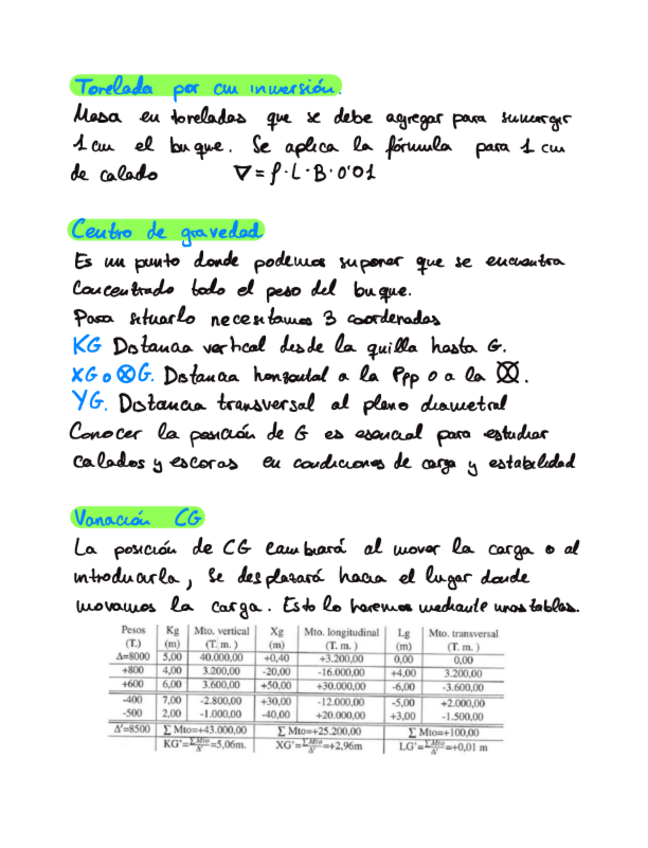 Tonelada por cm inmersión.
Masa en toneladas que se debe agregar para sumergir
1 cm el buque. Se aplica la fórmula para 1 cm
de calado ∇ = ρ · L · B · 0'01
Centro de gravedad
Es un punto donde podemos suponer que se encuentra
concentrado todo el peso del buque.
Para situarlo necesitamos 3 coordenadas
KG Distancia vertical desde la quilla hasta G.
XG o ⊗G. Distancia horizontal a la Ppp o a la ⊗.
YG. Distancia transversal al plano diametral
Conocer la posición de G es esencial para estudiar
calados y escoras en condiciones de carga y estabilidad
Variación CG
La posición de CG cambiará al mover la carga o al
introducirla, se desplazará hacia el lugar donde
movamos la carga. Esto lo haremos mediante unas tablas.
Pesos Kg Mto. vertical Xg Mto. longitudinal Lg Mto. transversal
(T.) (m) (T. m. ) (m) (T. m. ) (m) (T. m. )
Δ=8000 5,00 40.000,00 +0,40 +3.200,00 0,00 0,00
+800 4,00 3.200,00 -20,00 -16.000,00 +4,00 3.200,00
+600 6,00 3.600,00 +50,00 +30.000,00 -6,00 -3.600,00
-400 7,00 -2.800,00 +30,00 -12.000,00 -5,00 +2.000,00
-500 2,00 -1.000,00 -40,00 +20.000,00 +3,00 -1.500,00
Δ'=8500 ∑ Mto=+43.000,00 ∑ Mto=+25.200,00 ∑ Mto=+100,00
KG'=∑Mto/Δ'=5,06m. XG'=∑Mto/Δ'=+2,96m LG'=∑Mto/Δ'=+0,01 m